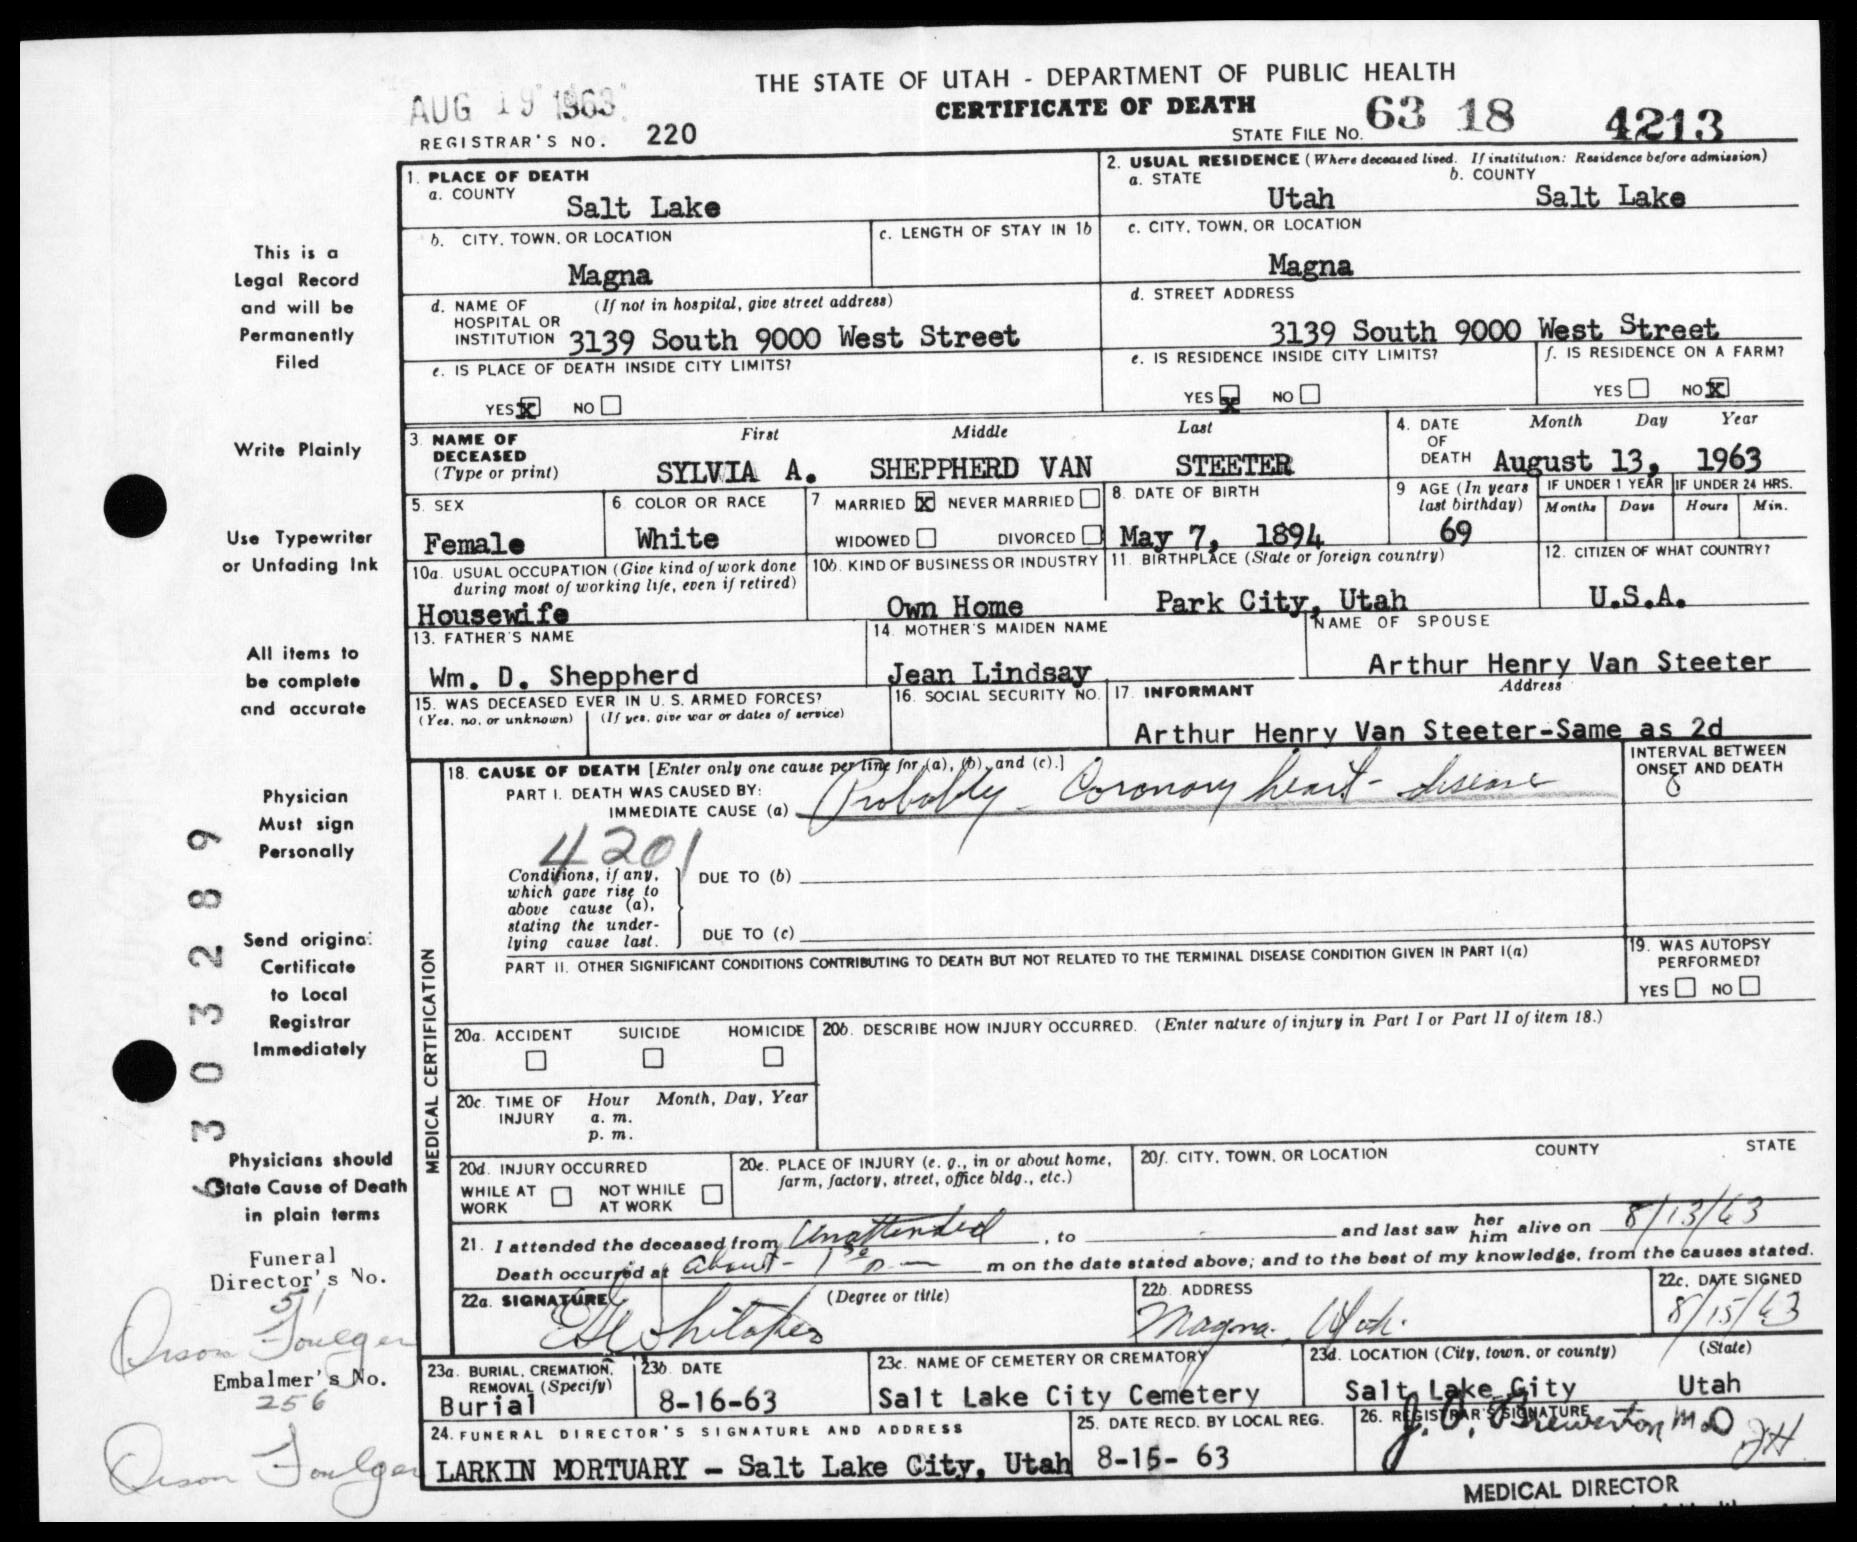 THE STATE OF UTAH - DEPARTMENT OF PUBLIC HEALTH
AUG 19 1963
CERTIFICATE OF DEATH
REGISTRAR'S NO. 220
STATE FILE NO. 63 18 4213
1. PLACE OF DEATH
a. COUNTY
Salt Lake
2. USUAL RESIDENCE (Where deceased lived. If institution: Residence before admission)
a. STATE
Utah
b. COUNTY
Salt Lake
b. CITY, TOWN, OR LOCATION
Magna
c. LENGTH OF STAY IN 1b
c. CITY, TOWN, OR LOCATION
Magna
d. NAME OF HOSPITAL OR INSTITUTION (If not in hospital, give street address)
3139 South 9000 West Street
d. STREET ADDRESS
3139 South 9000 West Street
e. IS PLACE OF DEATH INSIDE CITY LIMITS?
YES X NO
e. IS RESIDENCE INSIDE CITY LIMITS?
YES X NO
f. IS RESIDENCE ON A FARM?
YES NO X
3. NAME OF DECEASED (Type or print)
First Middle Last
SYLVIA A. SHEPPHERD VAN STEETER
4. DATE OF DEATH
Month Day Year
August 13, 1963
5. SEX
Female
6. COLOR OR RACE
White
7. MARRIED X NEVER MARRIED
WIDOWED DIVORCED
8. DATE OF BIRTH
May 7, 1894
9. AGE (In years last birthday)
69
IF UNDER 1 YEAR
Months Days
IF UNDER 24 HRS.
Hours Min.
10a. USUAL OCCUPATION (Give kind of work done during most of working life, even if retired)
Housewife
10b. KIND OF BUSINESS OR INDUSTRY
Own Home
11. BIRTHPLACE (State or foreign country)
Park City, Utah
12. CITIZEN OF WHAT COUNTRY?
U.S.A.
13. FATHER'S NAME
Wm. D. Sheppherd
14. MOTHER'S MAIDEN NAME
Jean Lindsay
NAME OF SPOUSE
Arthur Henry Van Steeter
15. WAS DECEASED EVER IN U.S. ARMED FORCES?
(Yes, no, or unknown) (If yes, give war or dates of service)
16. SOCIAL SECURITY NO.
17. INFORMANT Address
Arthur Henry Van Steeter-Same as 2d
MEDICAL CERTIFICATION
18. CAUSE OF DEATH [Enter only one cause per line for (a), (b), and (c).]
PART I. DEATH WAS CAUSED BY:
IMMEDIATE CAUSE (a) Probably Coronary heart disease
INTERVAL BETWEEN ONSET AND DEATH
4201
Conditions, if any, which gave rise to above cause (a), stating the underlying cause last.
DUE TO (b)
DUE TO (c)
PART II. OTHER SIGNIFICANT CONDITIONS CONTRIBUTING TO DEATH BUT NOT RELATED TO THE TERMINAL DISEASE CONDITION GIVEN IN PART I(a)
19. WAS AUTOPSY PERFORMED?
YES NO
20a. ACCIDENT SUICIDE HOMICIDE
20b. DESCRIBE HOW INJURY OCCURRED. (Enter nature of injury in Part I or Part II of item 18.)
20c. TIME OF INJURY
Hour Month, Day, Year
a. m.
p. m.
20d. INJURY OCCURRED
WHILE AT WORK NOT WHILE AT WORK
20e. PLACE OF INJURY (e. g., in or about home, farm, factory, street, office bldg., etc.)
20f. CITY, TOWN, OR LOCATION COUNTY STATE
21. I attended the deceased from Unattended, to and last saw her him alive on 8/13/63
Death occurred at About 1 30 p m on the date stated above; and to the best of my knowledge, from the causes stated.
22a. SIGNATURE (Degree or title)
22b. ADDRESS
Magna, Utah.
22c. DATE SIGNED
8/15/63
23a. BURIAL, CREMATION, REMOVAL (Specify)
Burial
23b. DATE
8-16-63
23c. NAME OF CEMETERY OR CREMATORY
Salt Lake City Cemetery
23d. LOCATION (City, town, or county) (State)
Salt Lake City Utah
24. FUNERAL DIRECTOR'S SIGNATURE AND ADDRESS
LARKIN MORTUARY - Salt Lake City, Utah
25. DATE RECD. BY LOCAL REG.
8-15-63
26. REGISTRAR'S SIGNATURE
J. O. Brewerton MD JH
MEDICAL DIRECTOR
This is a
Legal Record
and will be
Permanently
Filed
Write Plainly
Use Typewriter
or Unfading Ink
All items to
be complete
and accurate
Physician
Must sign
Personally
Send original
Certificate
to Local
Registrar
Immediately
Physicians should
State Cause of Death
in plain terms
Funeral
Director's No.
51
Orson Foulger
Embalmer's No.
256
Orson Foulger
6303289